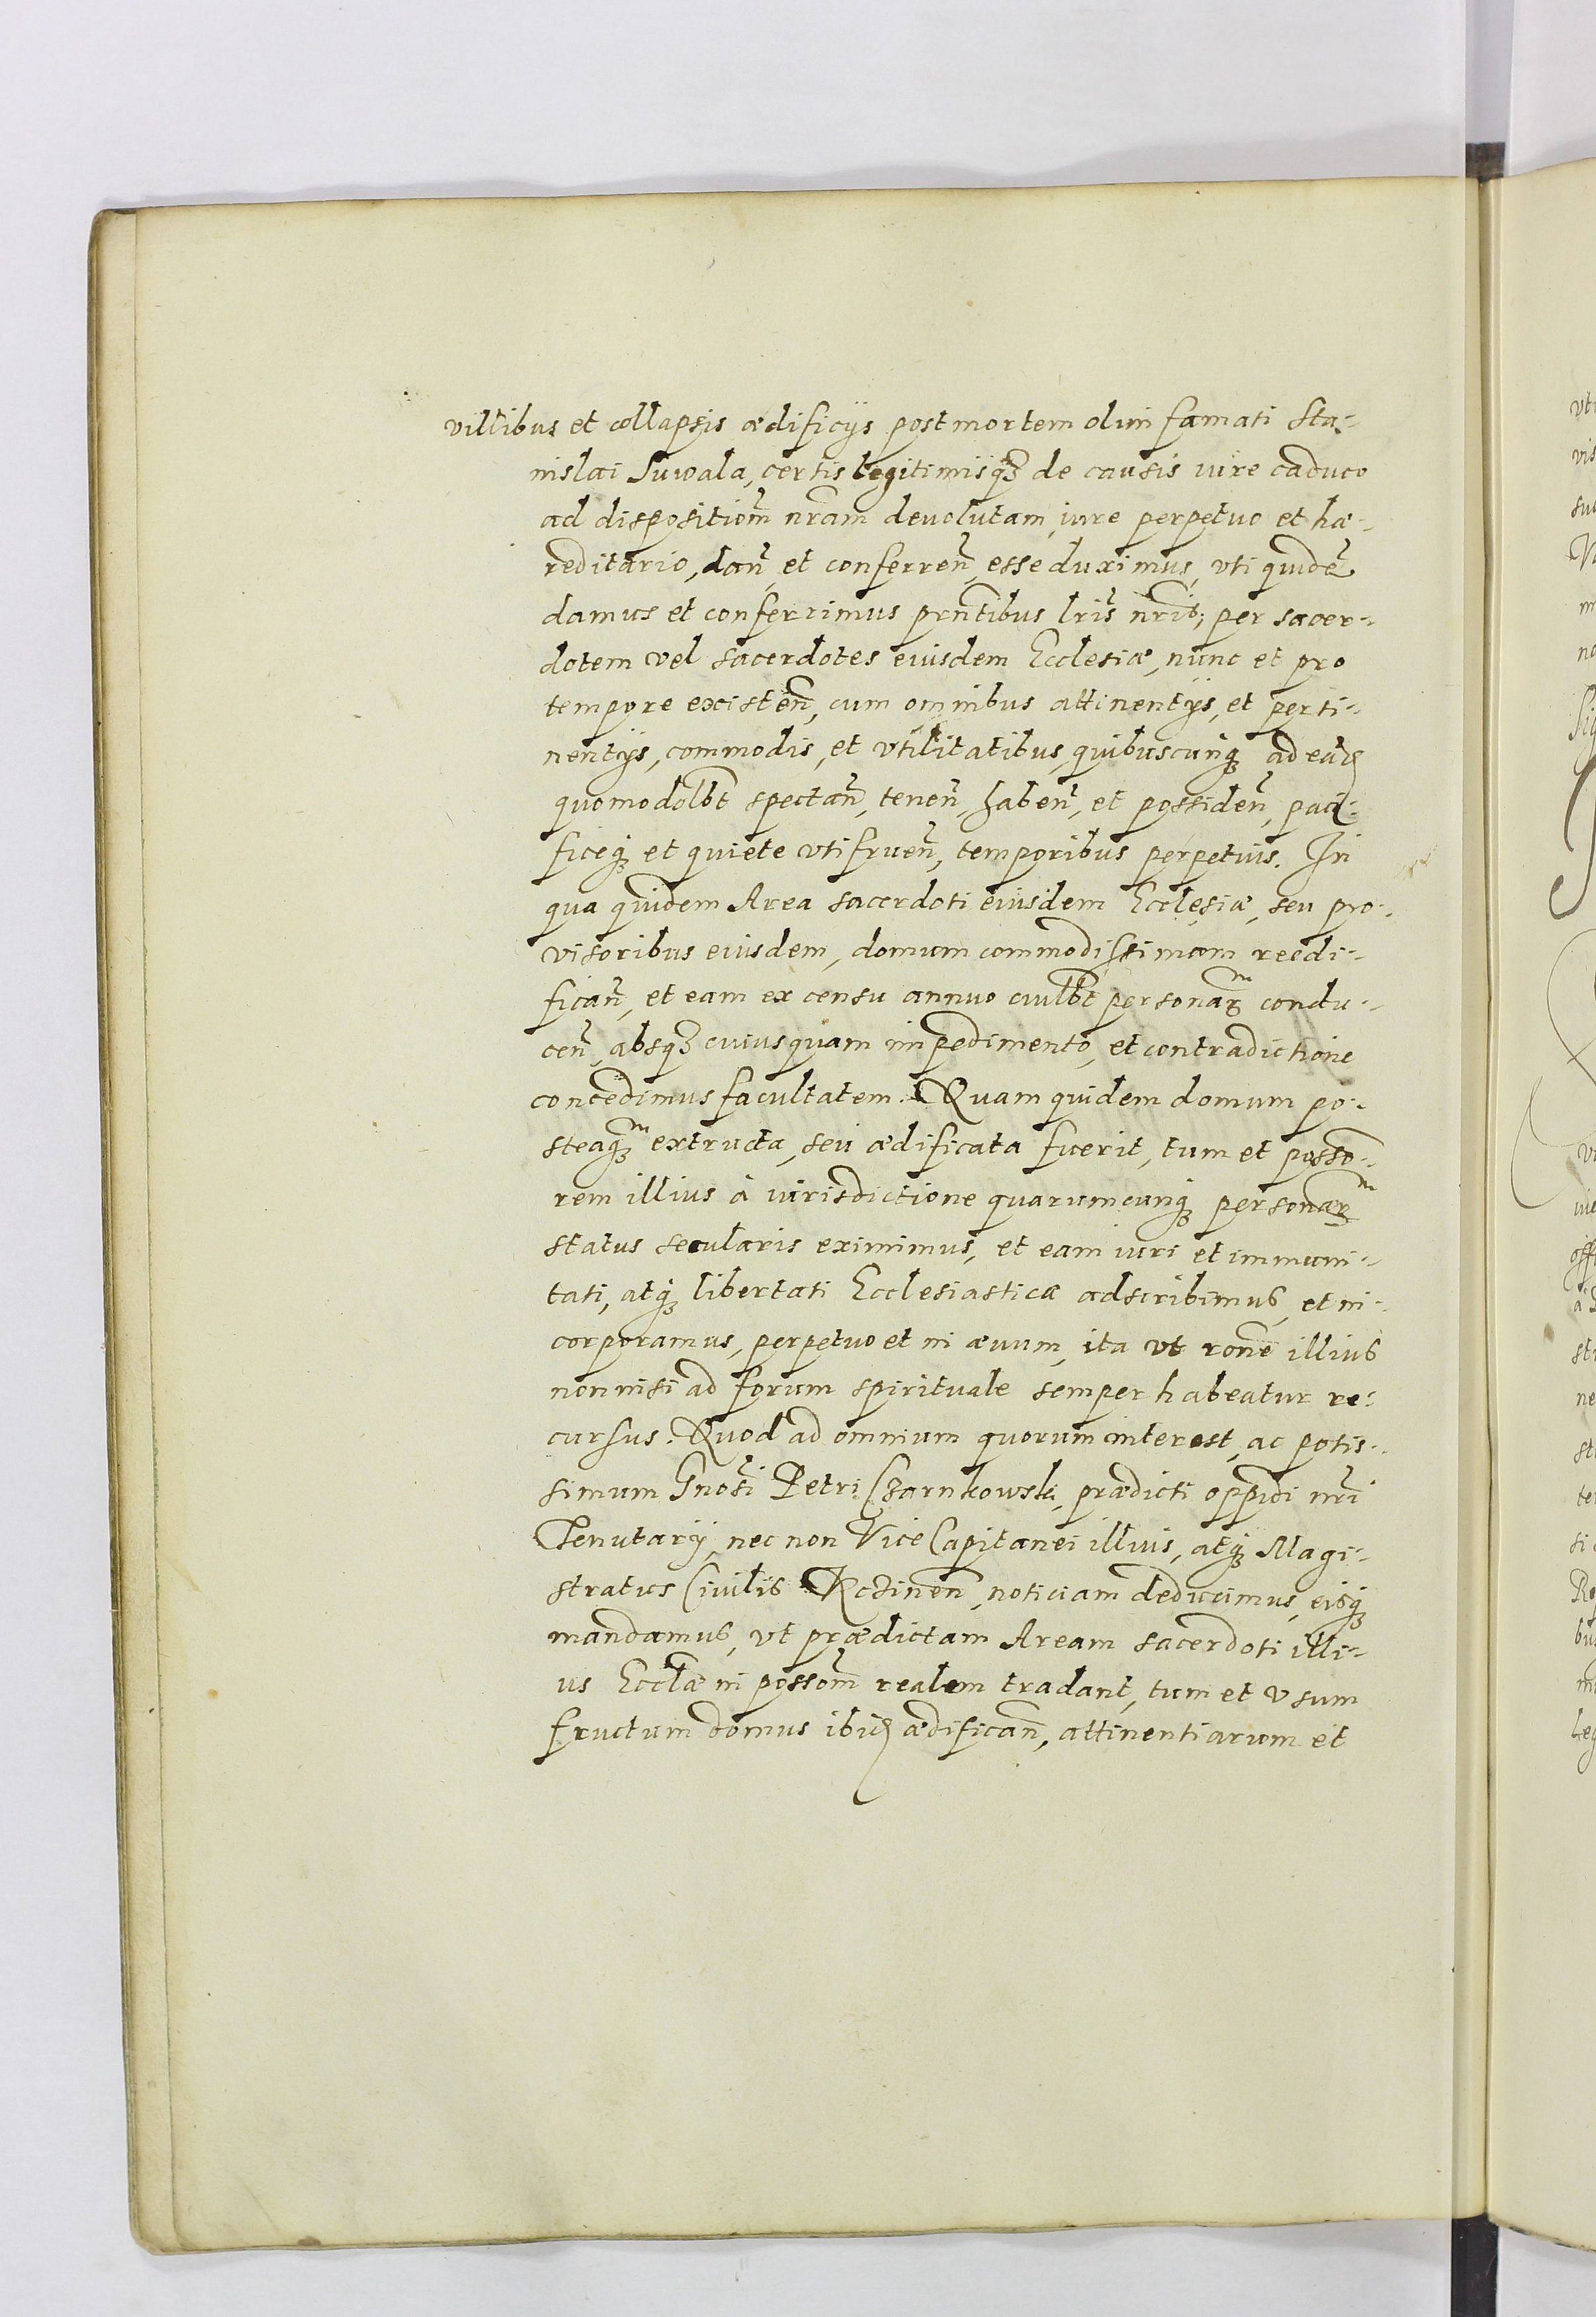 villibus et collapsis ædificijs post mortem olim famati Sta-
nislai Suwala, certis legitimisq3 de causis iure caduco
ad dispositiom̃ nr̃am deuolutam, iure perpetuo et hæ-
reditario, dan̄, et conferren̄, esse duximus, vti quidẽ
damus et conferrimus prn̄tibus lr̃is nr̃is, per sacer-
dotem vel sacerdotes eiusdem Ecclesiæ, nunc et pro
tempore existen̄, cum omnibus attinentijs, et perti-
nentijs, commodis, et vtilitatibus, quibuscunq3 ad eand
quomodolbt spectan̄, tenen̄, haben̄, et possiden̄, paci-
ficeq3 et quiete vtifruen̄, temporibus perpetuis. In
qua quidem Area sacerdoti eiusdem Ecclesiæ, seu pro-
visoribus eiusdem, domum commodissimam reedi-
fican̄, et eam ex censu annuo cuilbt personarm condu-
cen̄, absq3 cuiusquam impedimento, et contradictione
concedimus facultatem. Quam quidem domum po-
steaq3m extructa, seu ædificata fuerit, tum et posso-
rem illius à iurisdictione quarumcunq3 personarm
status secularis eximimus, et eam iuri et immuni-
tati, atq3 libertati Ecclesiasticæ adscribimus, et in-
corporamus, perpetuo et in æuum, ita vt rone illius
non nisi ad forum spirituale semper habeatur re-
cursus. Quod ad omnium quorum interest, ac potis-
simum Gnosi Petri Czarnkowski, prædicti oppidi nr̃i
Tenutarij, nec non Vice Capitanei illius, atq3 Magi-
stratus Ciuilis Rctinen̄, noticiam deducimus, eisq3
mandamus, vt prædictam Aream sacerdoti illi-
us Ecclæ in possom̃ realem tradant, tum et vsum
fructum domus ibid ædifican̄, attinentiarum et